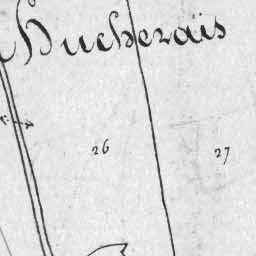 Hucherais
26
27